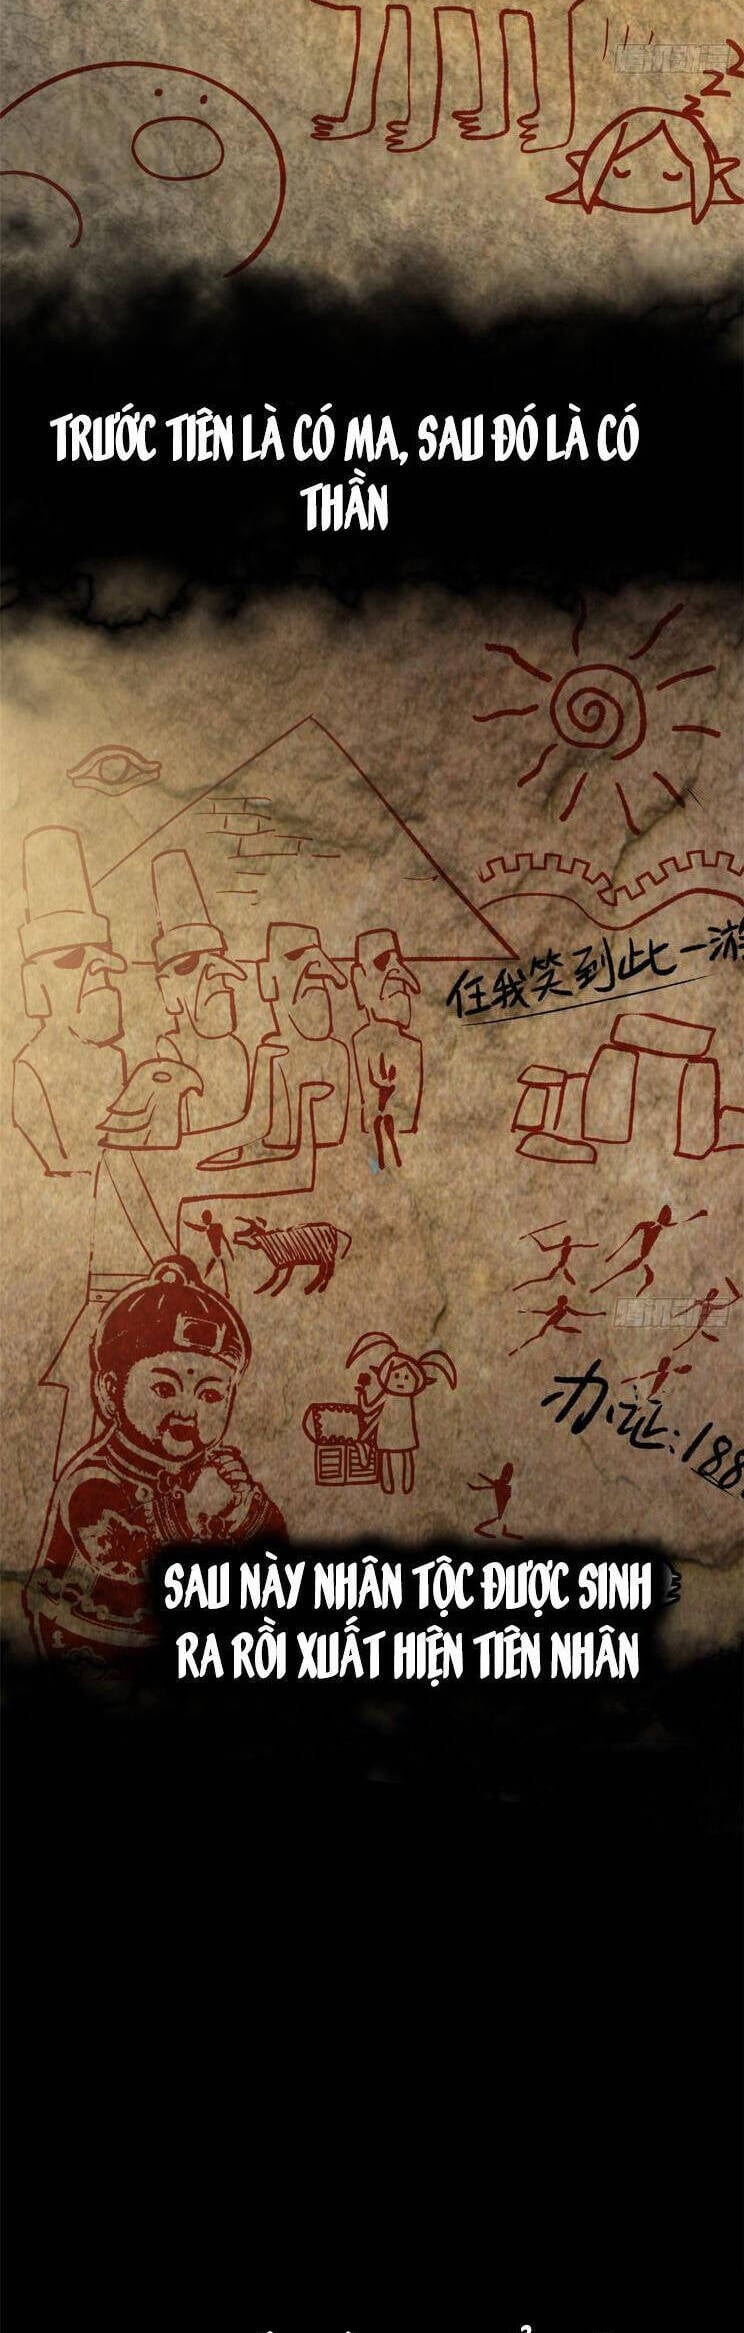 腾讯动漫
zzZZ
TRƯỚC TIÊN LÀ CÓ MA, SAU ĐÓ LÀ CÓ
THẦN
任我笑到此一游
腾讯动漫
办证:188
SAU NÀY NHÂN TỘC ĐƯỢC SINH
RA RỒI XUẤT HIỆN TIÊN NHÂN